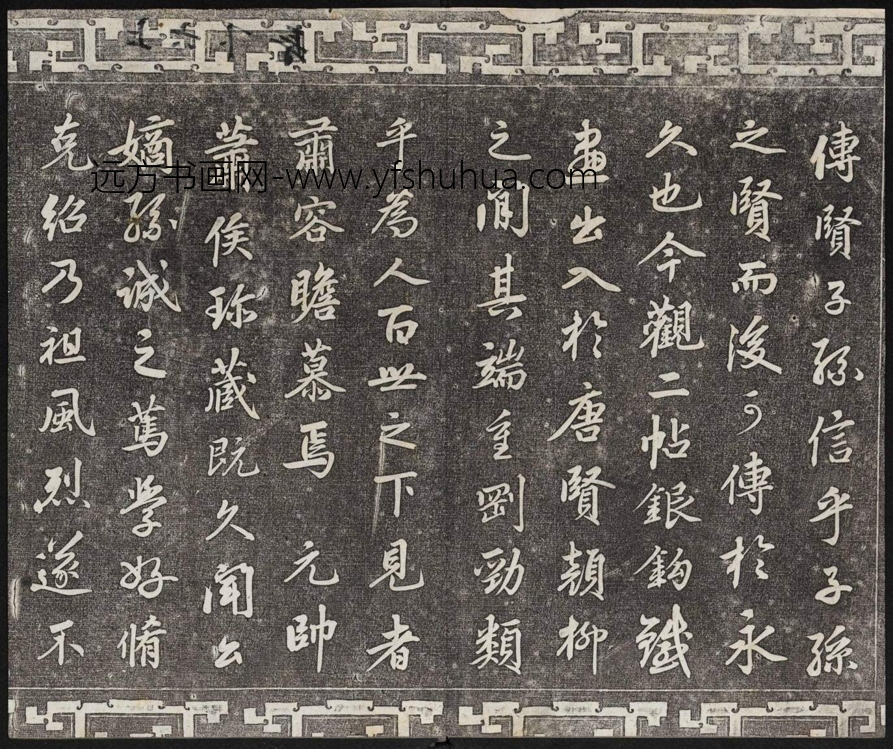 傳賢子孫信乎子孫
之賢而後可傳於永
久也今觀二帖銀鈎鐵
畫出入於唐賢顏柳
之間其端重剛勁類
乎為人百世之下見者
肅容瞻慕焉 元帥
葡侯珎藏既久聞公
嫡孫誠之篤學好脩
克紹乃祖風烈遂不
远方书画网-www.yfshuhua.com